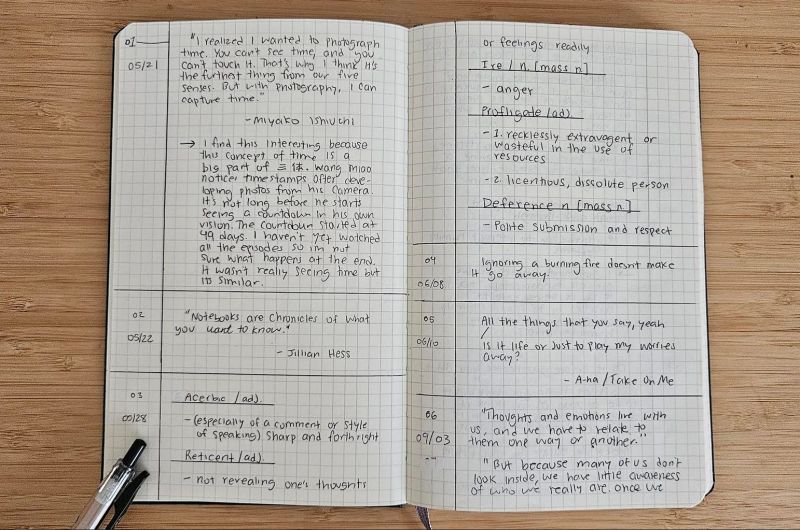 01
05/21
"I realized I wanted to photograph
time. You can't see time, and you
can't touch it. That's why I think it's
the furthest thing from our five
senses. But with photography, I can
capture time."
- Miyako Ishuchi
→ I find this interesting because
this concept of time is a
big part of 三体. Wang miao
notices timestamps after deve-
loping photos from his camera.
It's not long before he starts
seeing a countdown in his own
vision. The countdown started at
49 days. I haven't yet watched
all the episodes so im not
sure what happens at the end.
It wasn't really seeing time but
its similar.
02
05/22
"Notebooks are chronicles of what
you want to know."
- Jillian Hess
03
05/28
Acerbic /adj.
- (especially of a comment or style
of speaking) sharp and forthright
Reticent /adj.
- not revealing one's thoughts
or feelings readily
Ire / n. [mass n.]
- anger
Profligate /adj.
- 1. recklessly extravagent or
wasteful in the use of
resources
- 2. licentious, dissolute person
Deference n [mass n.]
- Polite submission and respect
04
06/08
Ignoring a burning fire doesn't make
it go away.
05
06/10
All the things that you say, yeah
/
Is it life or just to play my worries
away?
- A-ha / Take On Me
06
09/03
"Thoughts and emotions live with
us, and we have to relate to
them one way or another."
"But because many of us don't
look inside, we have little awareness
of who we really are. once we